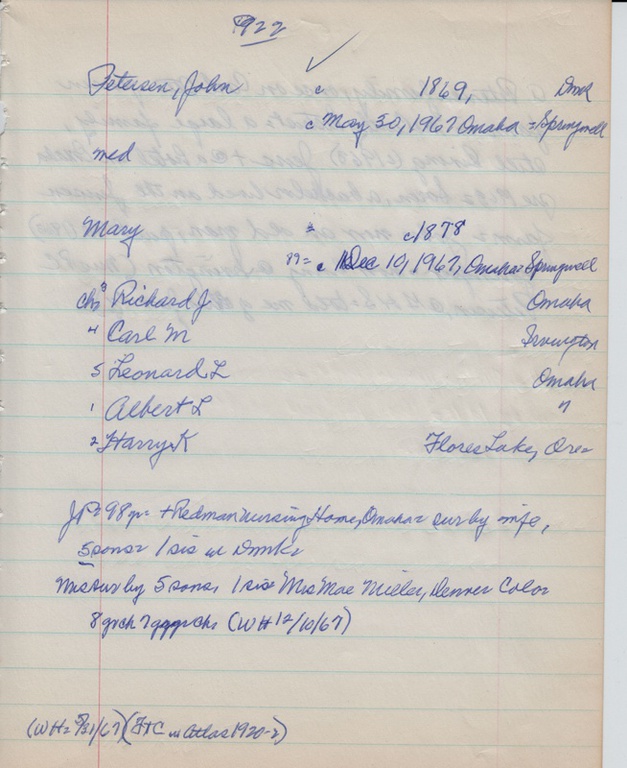 1922
✓
Petersen, John c 1869, Dmk
c May 30, 1967 Omaha = Springwell
med
Mary c1878
89= c Dec 10, 1967, Omaha = Springwell
chs 3 Richard J Omaha
4 Carl M Irvington
5 Leonard L Omaha
1 Albert L "
2 Harry K Flores Lake, Ore=
JP= 98 yr= + Redman Nursing Home, Omaha= sur by wife,
5 sons= 1 sis in Dmk=
Mrs sur by 5 sons, 1 sis= Mrs Mae Miller, Denver Colo=
8 grch 7 ggrch (WH 12/10/67)
(WH= 5/31/67) (FTC in Atlas 1920-2)